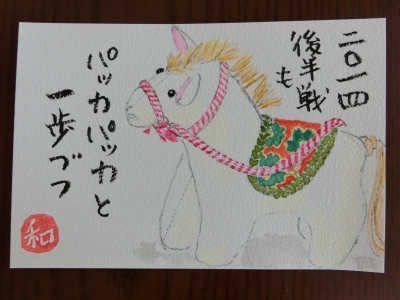 二〇一四
後半戦
も
パッカパッカと
一歩づつ
和